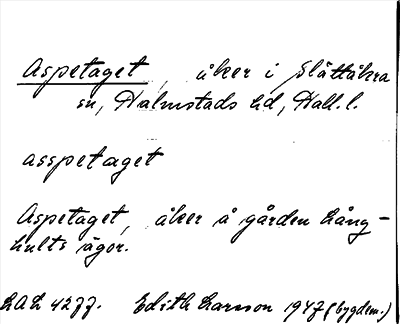 Aspetaget, åker i Slättåkra
sn, Halmstads hd, Hall. l.
asspetaget
Aspetaget, åker å gården Lång-
hults ägor.
LAL 4277. Edith Larsson 1947 (bygdem.)